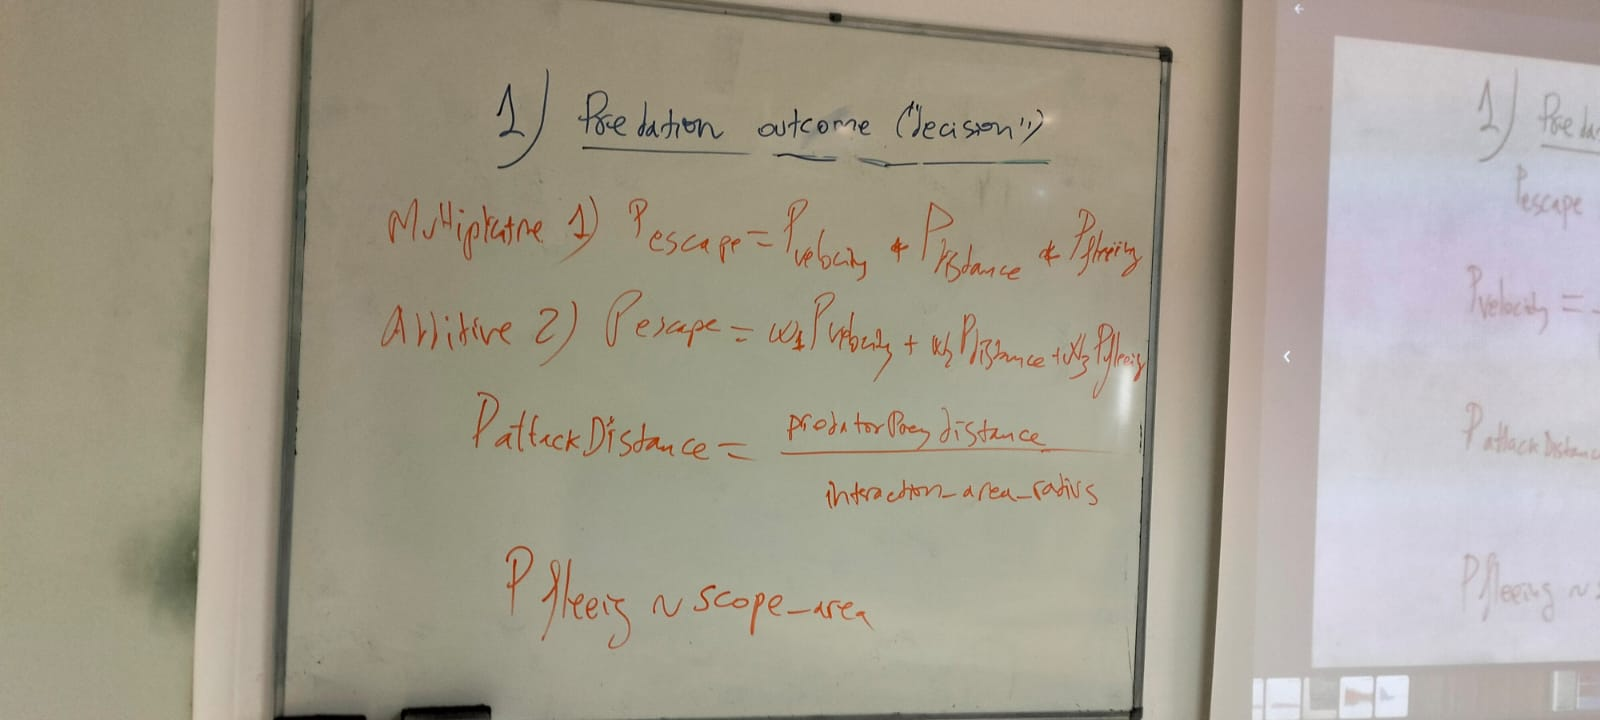 1) Predation outcome ("decision")
Multiplicative 1) P escape = P velocity * P Distance * P fleeing
Additive 2) P escape = w1 P velocity + w2 P Distance + w3 P fleeing
P attackDistance = predatorPrey distance
interaction_area_radius
P fleeing ~ scope_area
1) Preda
P escape
P velocity =
P attack Distanc
P fleeing ~ s